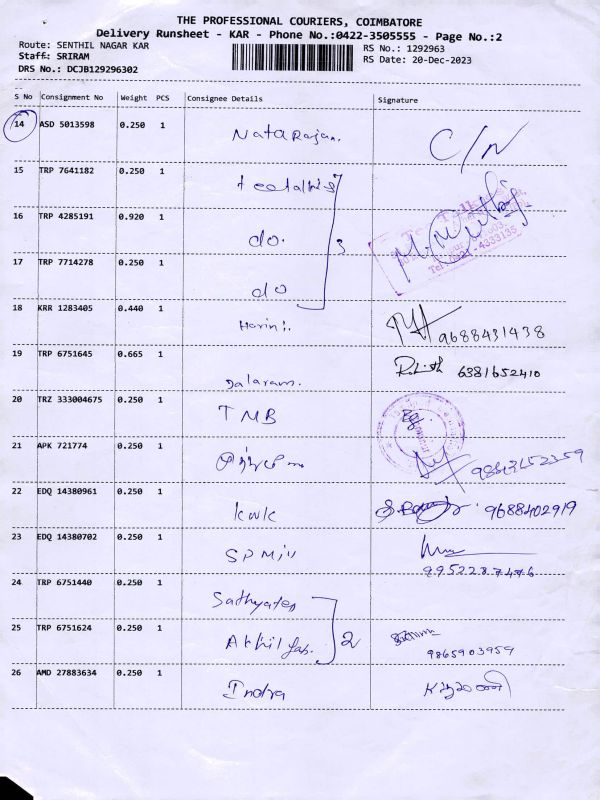 THE PROFESSIONAL COURIERS, COIMBATORE
Delivery Runsheet - KAR - Phone No.:0422-3505555 - Page No.:2
Route: SENTHIL NAGAR KAR
Staff: SRIRAM
DRS No.: DCJB129296302
RS No.: 1292963
RS Date: 20-Dec-2023
S No Consignment No Weight PCS Consignee Details Signature
14 ASD 5013598 0.250 1 Natarajan. C/N
15 TRP 7641182 0.250 1
16 TRP 4285191 0.920 1 do. 3
17 TRP 7714278 0.250 1 do
18 KRR 1283405 0.440 1 Harini. 9688431438
19 TRP 6751645 0.665 1 6381652410
20 TRZ 333004675 0.250 1 TMB
21 APK 721774 0.250 1 9843152359
22 EDQ 14380961 0.250 1 KWK 9688402919
23 EDQ 14380702 0.250 1 SPMill 9952287476
24 TRP 6751440 0.250 1
25 TRP 6751624 0.250 1 Akhil 2 9865903959
26 AMD 27883634 0.250 1 Indra